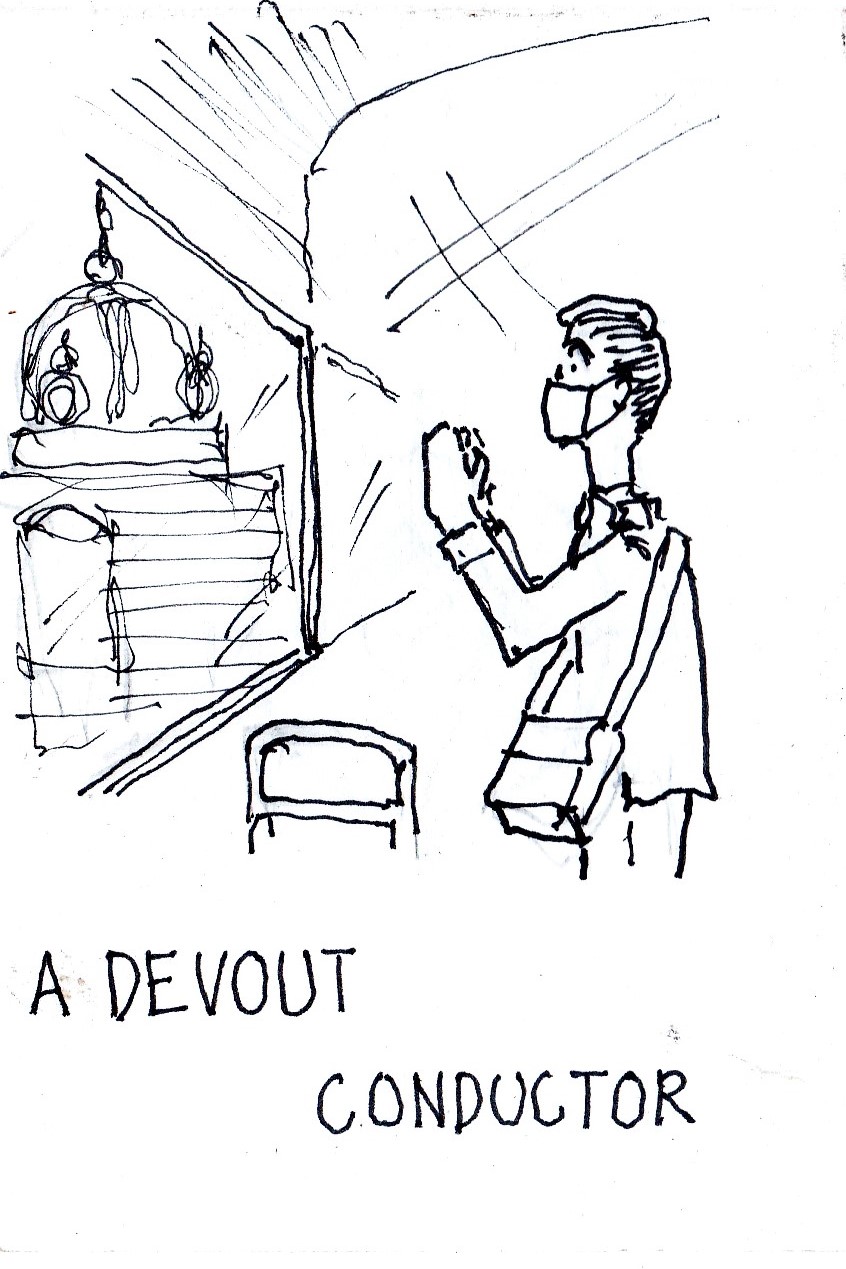 A DEVOUT
CONDUCTOR